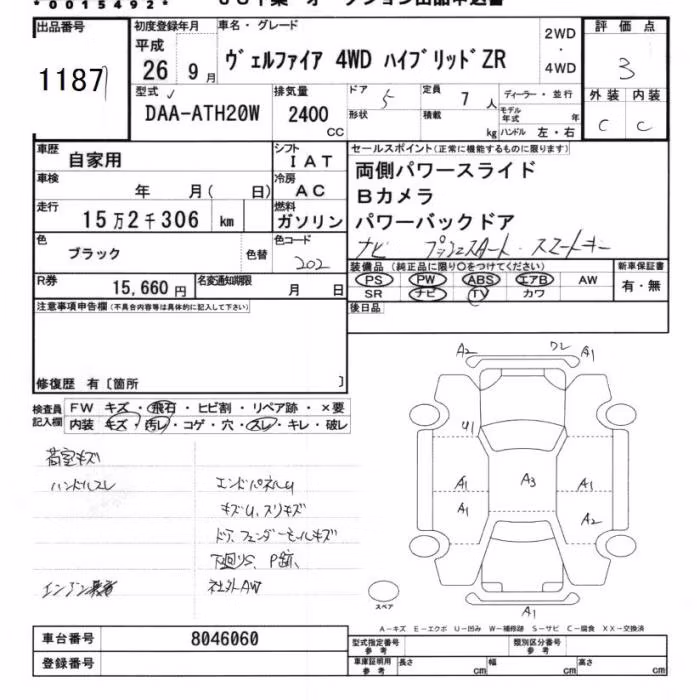 *0015492*
出品番号
1187
初度登録年月
平成
26 9月
車名・グレード
ヴェルファイア 4WD ハイブリッドZR
2WD
・
4WD
評価点
3
外装 内装
C C
型式
DAA-ATH20W
排気量
2400
CC
ドア 5
定員 7人
ディーラー・並行
形状
積載 kg
モデル年式 年
ハンドル 左・右
車歴 自家用
シフト IAT
車検 年 月( 日)
冷房 AC
走行 15万2千306 km
燃料 ガソリン
セールスポイント(正常に機能するものに限ります)
両側パワースライド
Bカメラ
パワーバックドア
ナビ プッシュスタート・スマートキー
色 ブラック
色替
色コード 202
装備品(純正品に限り○をつけてください)
新車保証書
PS PW ABS エアB AW
SR ナビ TV カワ
有・無
R券 15,660円
名変通知期限 月 日
後日品
注意事項申告欄(不具合内容等は具体的に記入して下さい)
修復歴 有〔箇所 〕
検査員記入欄
FW キズ・飛石・ヒビ割・リペア跡・×要
内装 キズ・汚レ・コゲ・穴・スレ・キレ・破レ
荷室キズ
ハンドルスレ
エンドパネルU
キズU、スリキズ
ドア、フェンダーモールキズ
下廻りS、P跡、
社外AW
A2
A1
U1
A1
A1
A3
A1
A2
A1
スペア
A-キズ E-エクボ U-凹み W-補修跡 S-サビ C-腐食 XX-交換済
車台番号 8046060
登録番号
型式指定番号 参考
類別区分番号 参考
車庫証明用 参考
長さ cm
幅 cm
高さ cm